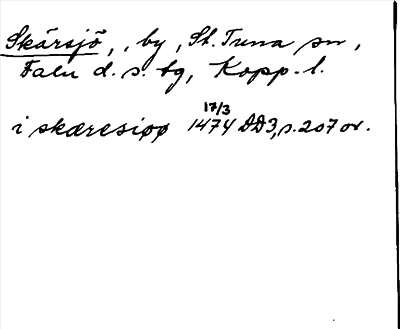 Skärsjö, , by, St. Tuna sn,
Falu d. s. tg, Kopp. l.
17/3
i skæresiøø 1474 DD3, s. 207 or.